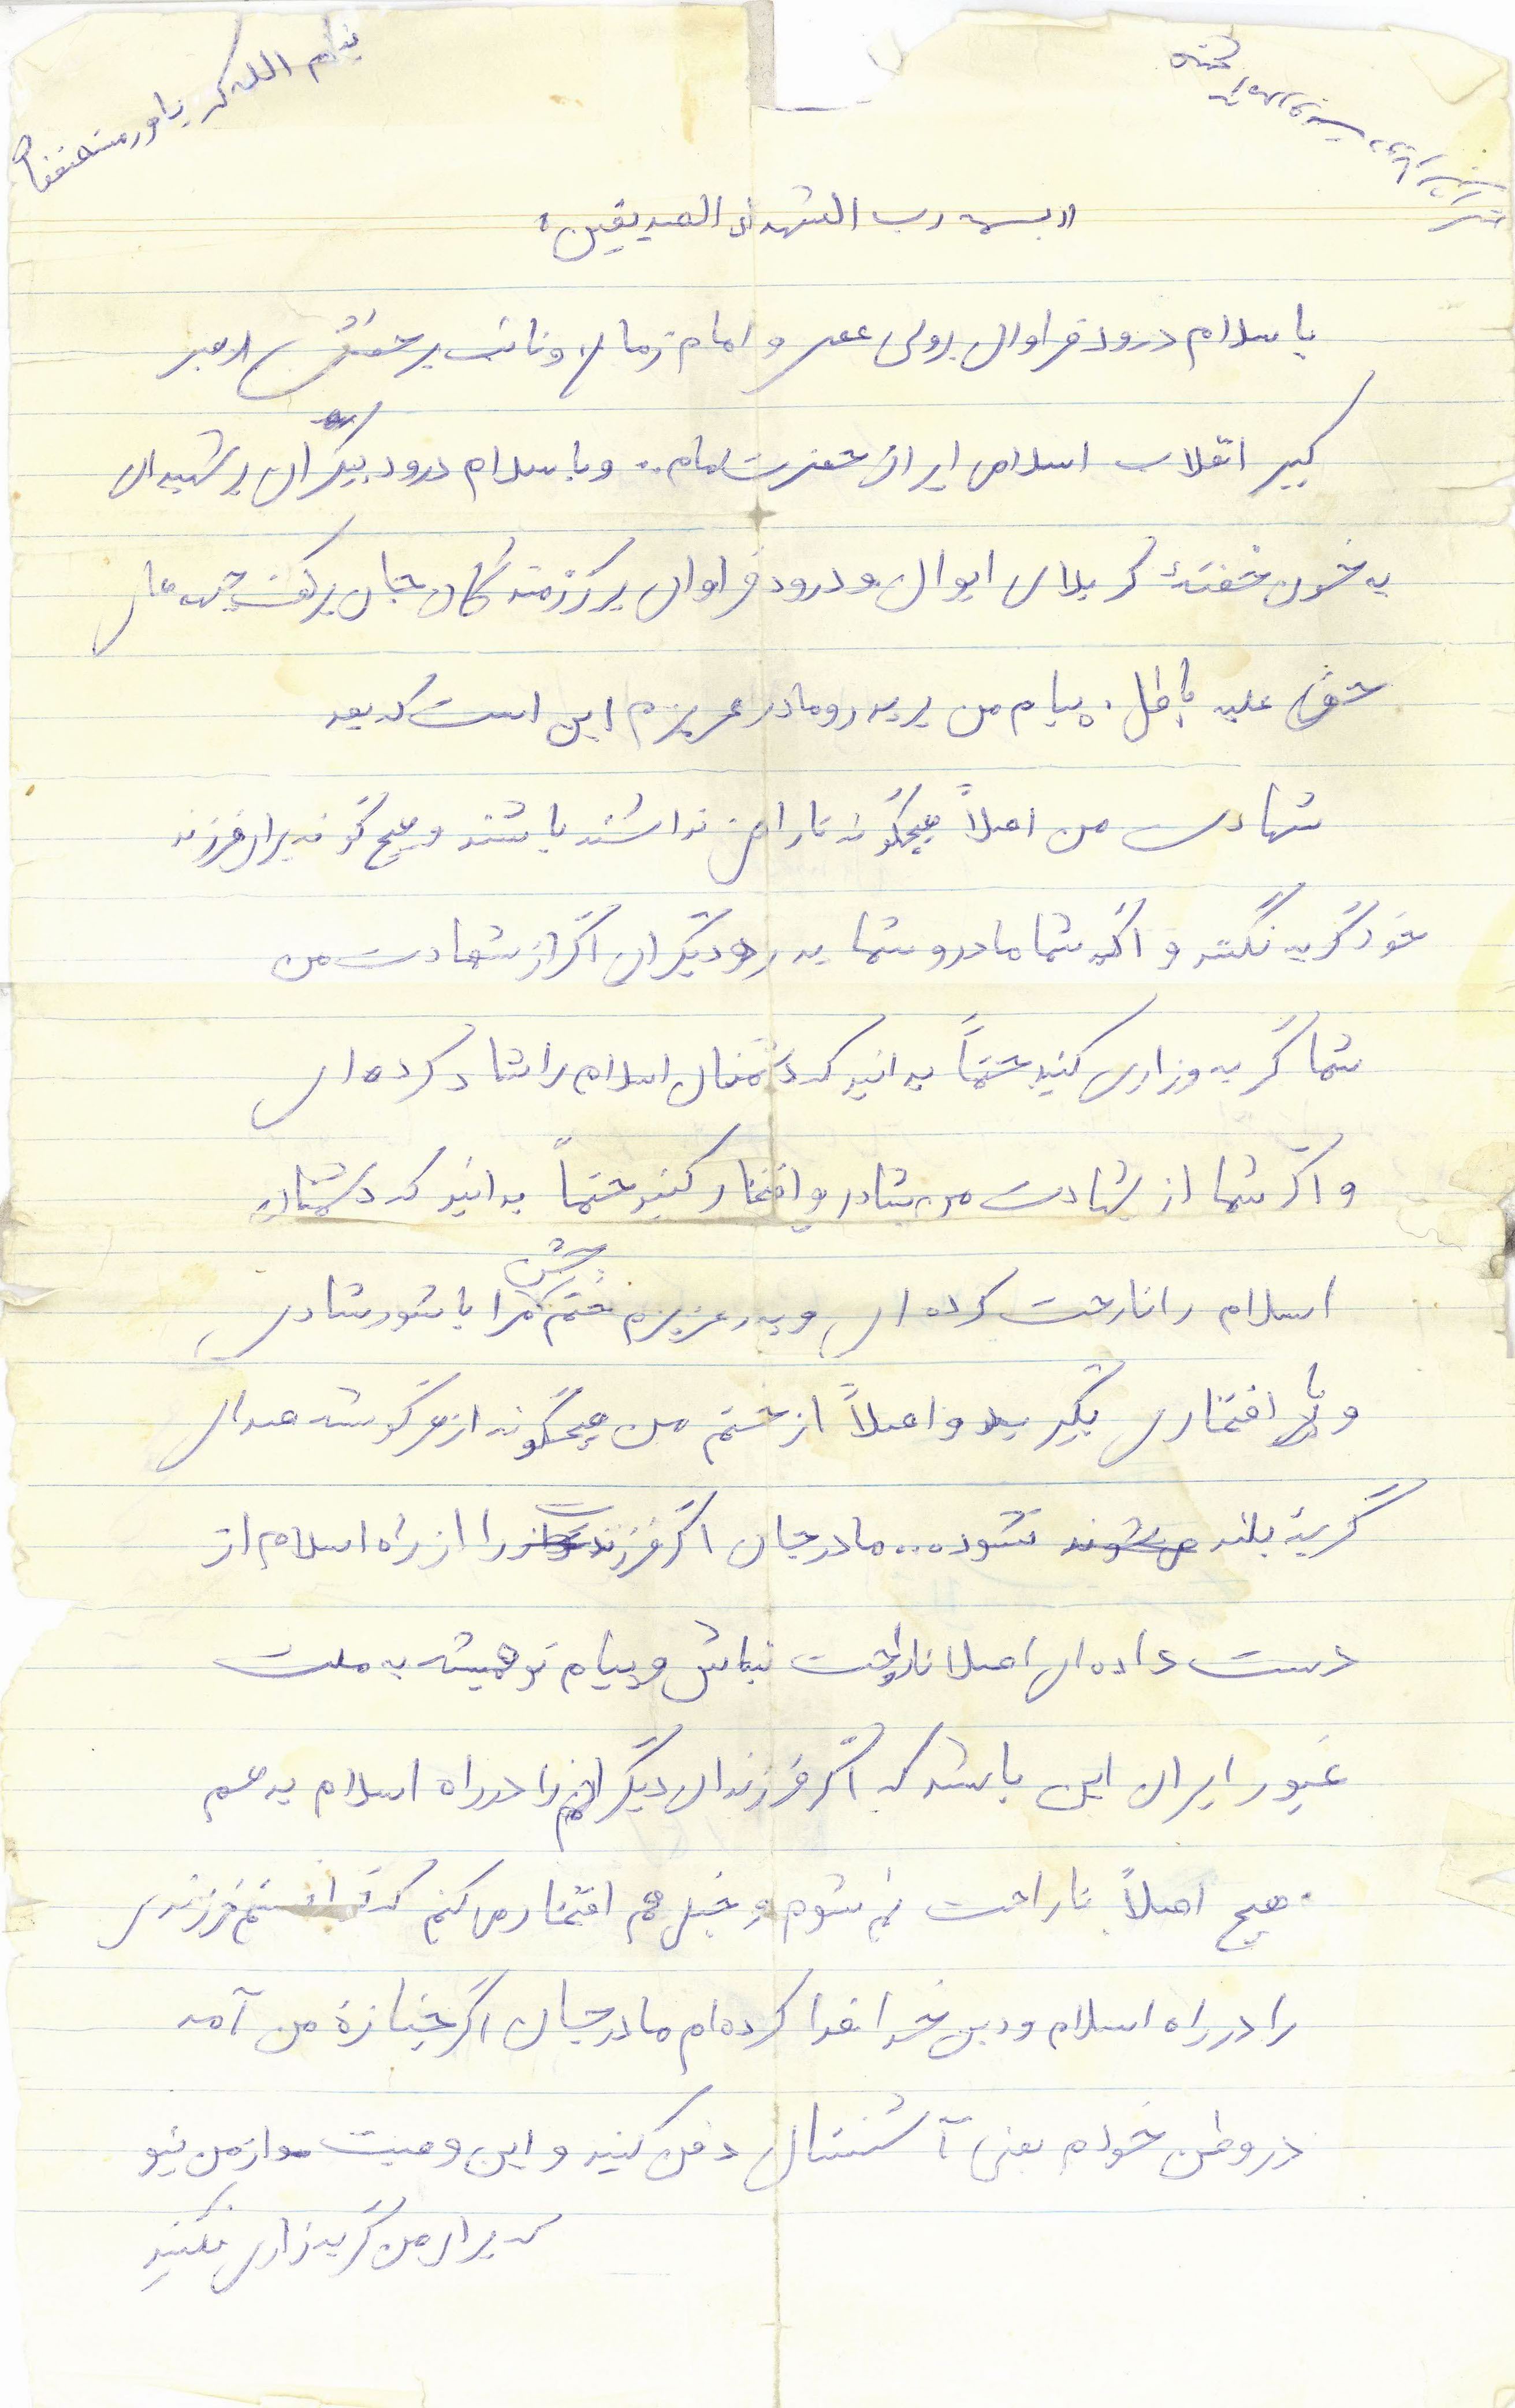 بنام الله که یاور مستضعفان
«بسمه رب الشهداء الصدیقین»
با سلام درود فراوان بر ولی عصر و امام زمان و نائب بر حقش رهبر
کبیر انقلاب اسلامی ایران حضرت امام.. و با سلام درود بیکران بر شهیدان
به خون خفته کربلای ایران و درود فراوان بر رزمندگان جان بر کف جبهه های
حق علیه باطل. پیام من بر پدر و مادر عزیزم این است که بعد
شهادت من اصلاً هیچگونه ناراضی نداشته باشند و هیچ گونه برای فرزند
خود گریه نکنند و اگر شما مادر و شما پدر و دیگران اگر از شهادت من
شما گریه وزاری کنید حتماً بدانید که دشمنان اسلام را شاد کرده ای
و اگر شما از شهادت من شاد و افتخار کنید حتماً بدانید که دشمنان
اسلام را ناراحت کرده ای و پدر عزیزم ختم جشن مرا با شور شادی
و با افتخاری بگیرید و اصلاً از ختم من هیچگونه از هر گوشه صدای
گریه بلند نشود... مادر جان اگر فرزندت را از راه اسلام از
دست داده ای اصلا ناراحت نباش و پیام تو همیشه به ملت
غیور ایران این باشد که اگر فرزندان دیگرم را در راه اسلام بدهم
هیچ اصلاً ناراحت نمی شوم و خیلی هم افتخار می کنم که فرزندی
را در راه اسلام و دین خدا فدا کرده ام مادر جان اگر جنازۀ من آمد
در وطن خودم یعنی آشتیان دفن کنید و این وصیت از من
که برای من گریه زاری نکنید